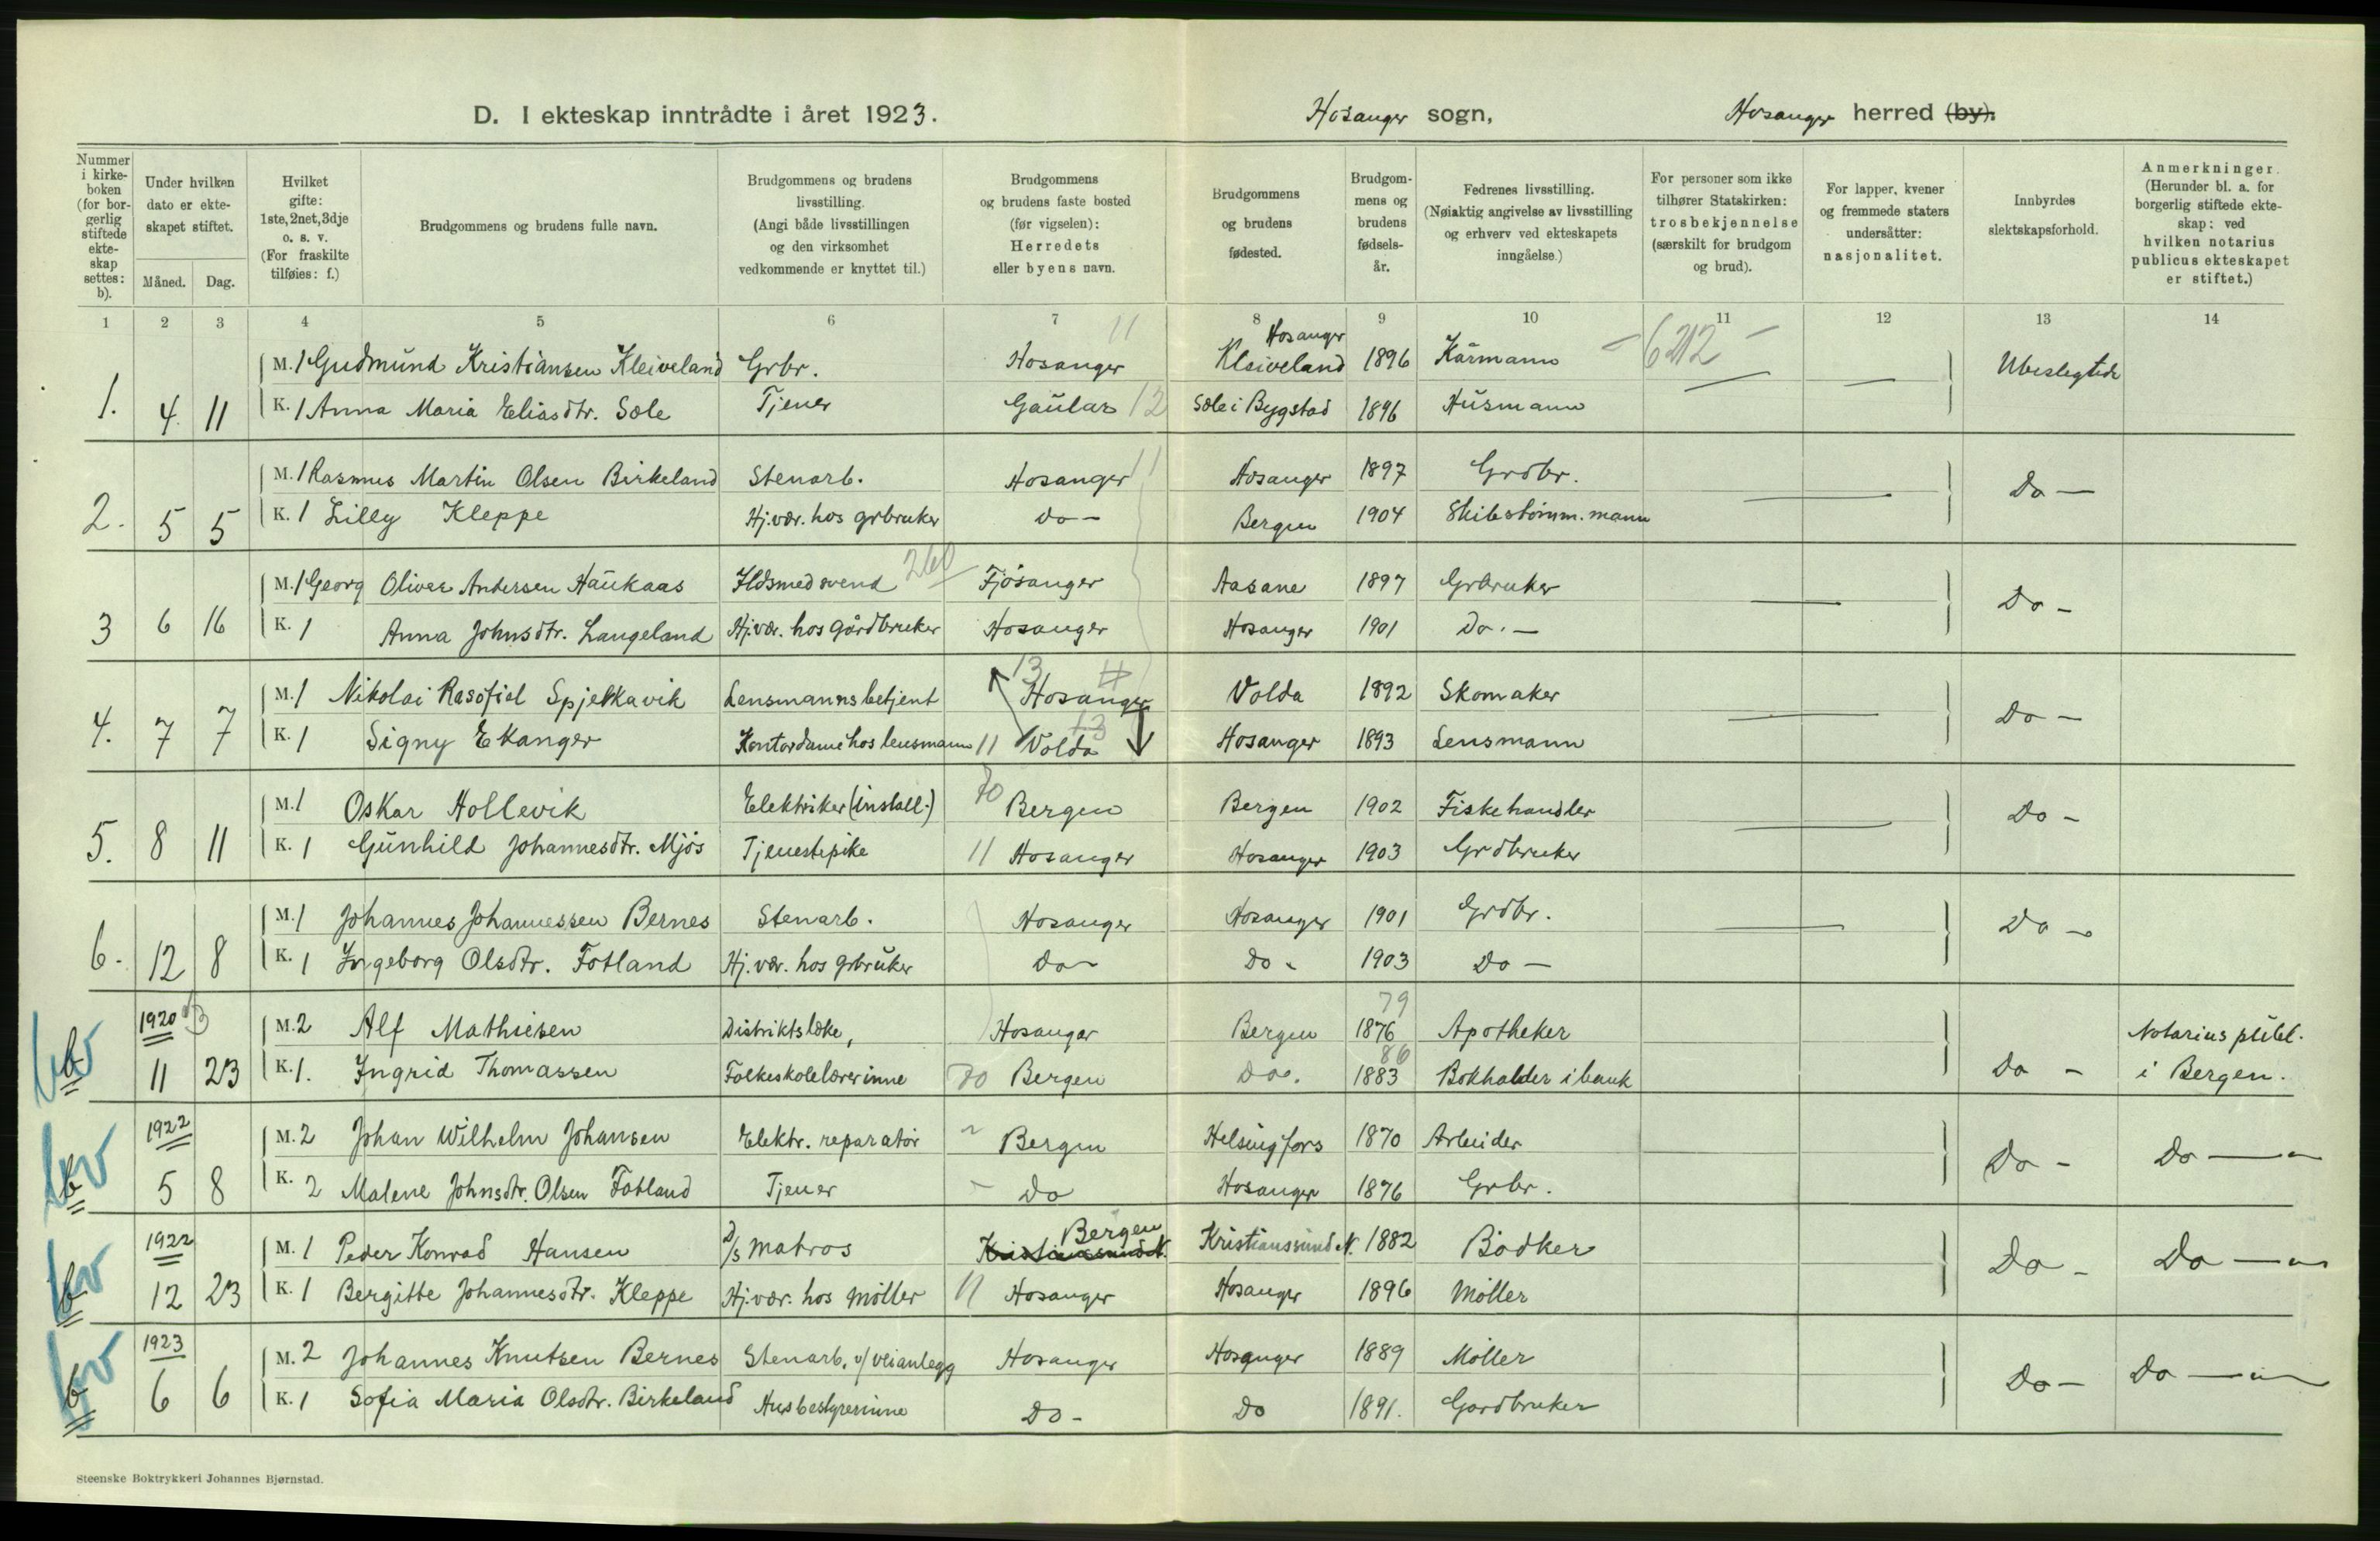 D. I ekteskap inntrådte i året 1923.
Hosanger sogn, Hosanger herred (by).
Nummer i kirkeboken (for borgerlig stiftede ekteskap settes: b).
Under hvilken dato er ekteskapet stiftet.
Måned. Dag.
Hvilket gifte: 1ste, 2net, 3dje o. s. v. (For fraskilte tilføies: f.)
Brudgommens og brudens fulle navn.
Brudgommens og brudens livsstilling. (Angi både livsstillingen og den virksomhet vedkommende er knyttet til.)
Brudgommens og brudens faste bosted (før vigselen): Herredets eller byens navn.
Brudgommens og brudens fødested.
Brudgommens og brudens fødselsår.
Fedrenes livsstilling. (Nøiaktig angivelse av livsstilling og erhverv ved ekteskapets inngåelse.)
For personer som ikke tilhører Statskirken: trosbekjennelse (særskilt for brudgom og brud).
For lapper, kvener og fremmede staters undersåtter: nasjonalitet.
Innbyrdes slektskapsforhold.
Anmerkninger. (Herunder bl. a. for borgerlig stiftede ekteskap: ved hvilken notarius publicus ekteskapet er stiftet.)
1 2 3 4 5 6 7 8 9 10 11 12 13 14
11 Hosanger
M. 1 Gudmund Kristiansen Kleiveland Grbr. Hosanger Kleiveland 1896 Kårmann - 6212 - Ubeslegtede
1. 4. 11 K. 1 Anna Maria Eliasdtr. Sole Tjener Gaular 12 Sole i Bygstad 1896 Husmann
M. 1 Rasmus Martin Olsen Birkeland Stenarb. Hosanger 11 Hosanger 1897 Grdbr. Do —
2. 5 5 K. 1 Lilly Kleppe Hj.vær. hos grbruker do - Bergen 1904 Skibstømm.mann
M. 1 Georg Oliver Andersen Haukaas Ildsmedsvend 260 Fjøsanger Aasane 1897 Grbruker Do -
3 6 16 K. 1 Anna Johnsdtr. Langeland Hj.vær. hos gårdbruker Hosanger Hosanger 1901 Do. —
13 11
M. 1 Nikolai Rasofiel Spjelkavik Lensmannsbetjent Hosanger Volda 1892 Skomaker Do -
4. 7 7 K. 1 Signy Ekanger Kontordame hos lensmann 11 Volda 13 Hosanger 1893 Lensmann
M. 1 Oskar Hollevik Elektriker (install.) 70 Bergen Bergen 1902 Fiskehandler Do -
5. 8 11 K. 1 Gunhild Johannesdtr. Mjøs Tjenestepike 11 Hosanger Hosanger 1903 Grdbruker
M. 1 Johannes Johannessen Bernes Stenarb. Hosanger Hosanger 1901 Grdbr. Do -
6. 12 8 K. 1 Ingeborg Olsdtr. Fotland Hj.vær. hos grbruker Do - Do - 1903 Do —
1920 79
M. 2 Alf Mathiesen Distriktslæke, Hosanger Bergen 1876 Apotheker Notarius publ.
86
b 11 23 K. 1. Ingrid Thomassen Folkeskolelærerinne 70 Bergen Do. 1883 Bokholder i bank Do - i Bergen.
1922
M. 2 Johan Wilhelm Johansen Elektr. reparatør Bergen Helsingfors 1870 Arbeider Do - Do —
b 5 8 K. 2 Malene Johnsdtr. Olsen Fotland Tjener Do Hosanger 1876 Grbr.
1922 Bergen
M. 1 Peder Konrad Hansen D/s matros Kristianssund N. Kristianssund N. 1882 Bødker Do - Do —
b 12 23 K. 1 Bergitte Johannesdtr. Kleppe Hj.vær. hos møller 11 Hosanger Hosanger 1896 Møller
1923
M. 2 Johannes Knutsen Bernes Stenarb. v/veianlegg Hosanger Hosanger 1889 Møller Do - Do —
b 6 6 K. 1 Sofia Maria Olsdtr. Birkeland Husbestyrerinne Do - Do 1891. Gardbruker
Steenske Boktrykkeri Johannes Bjørnstad.